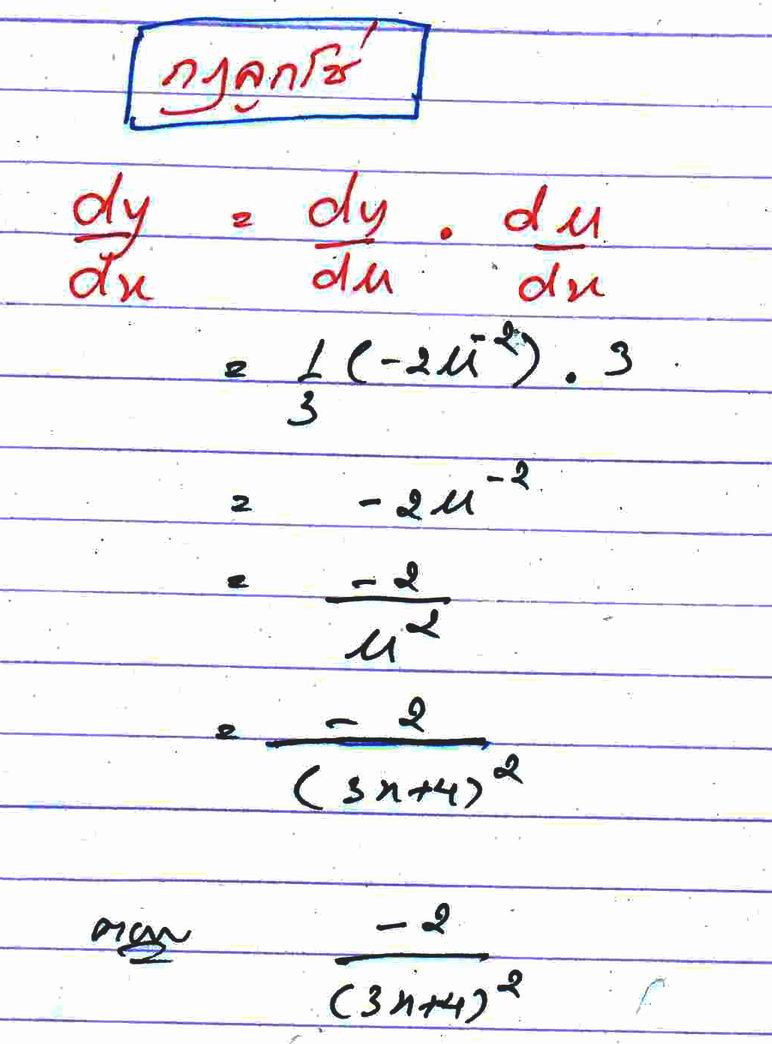 กฎลูกโซ่
dy/dx = dy/du · du/dx
= 1/3 (-2u⁻²) · 3
= -2u⁻²
= -2/u²
= -2/(3x+4)²
ตอบ -2/(3x+4)²